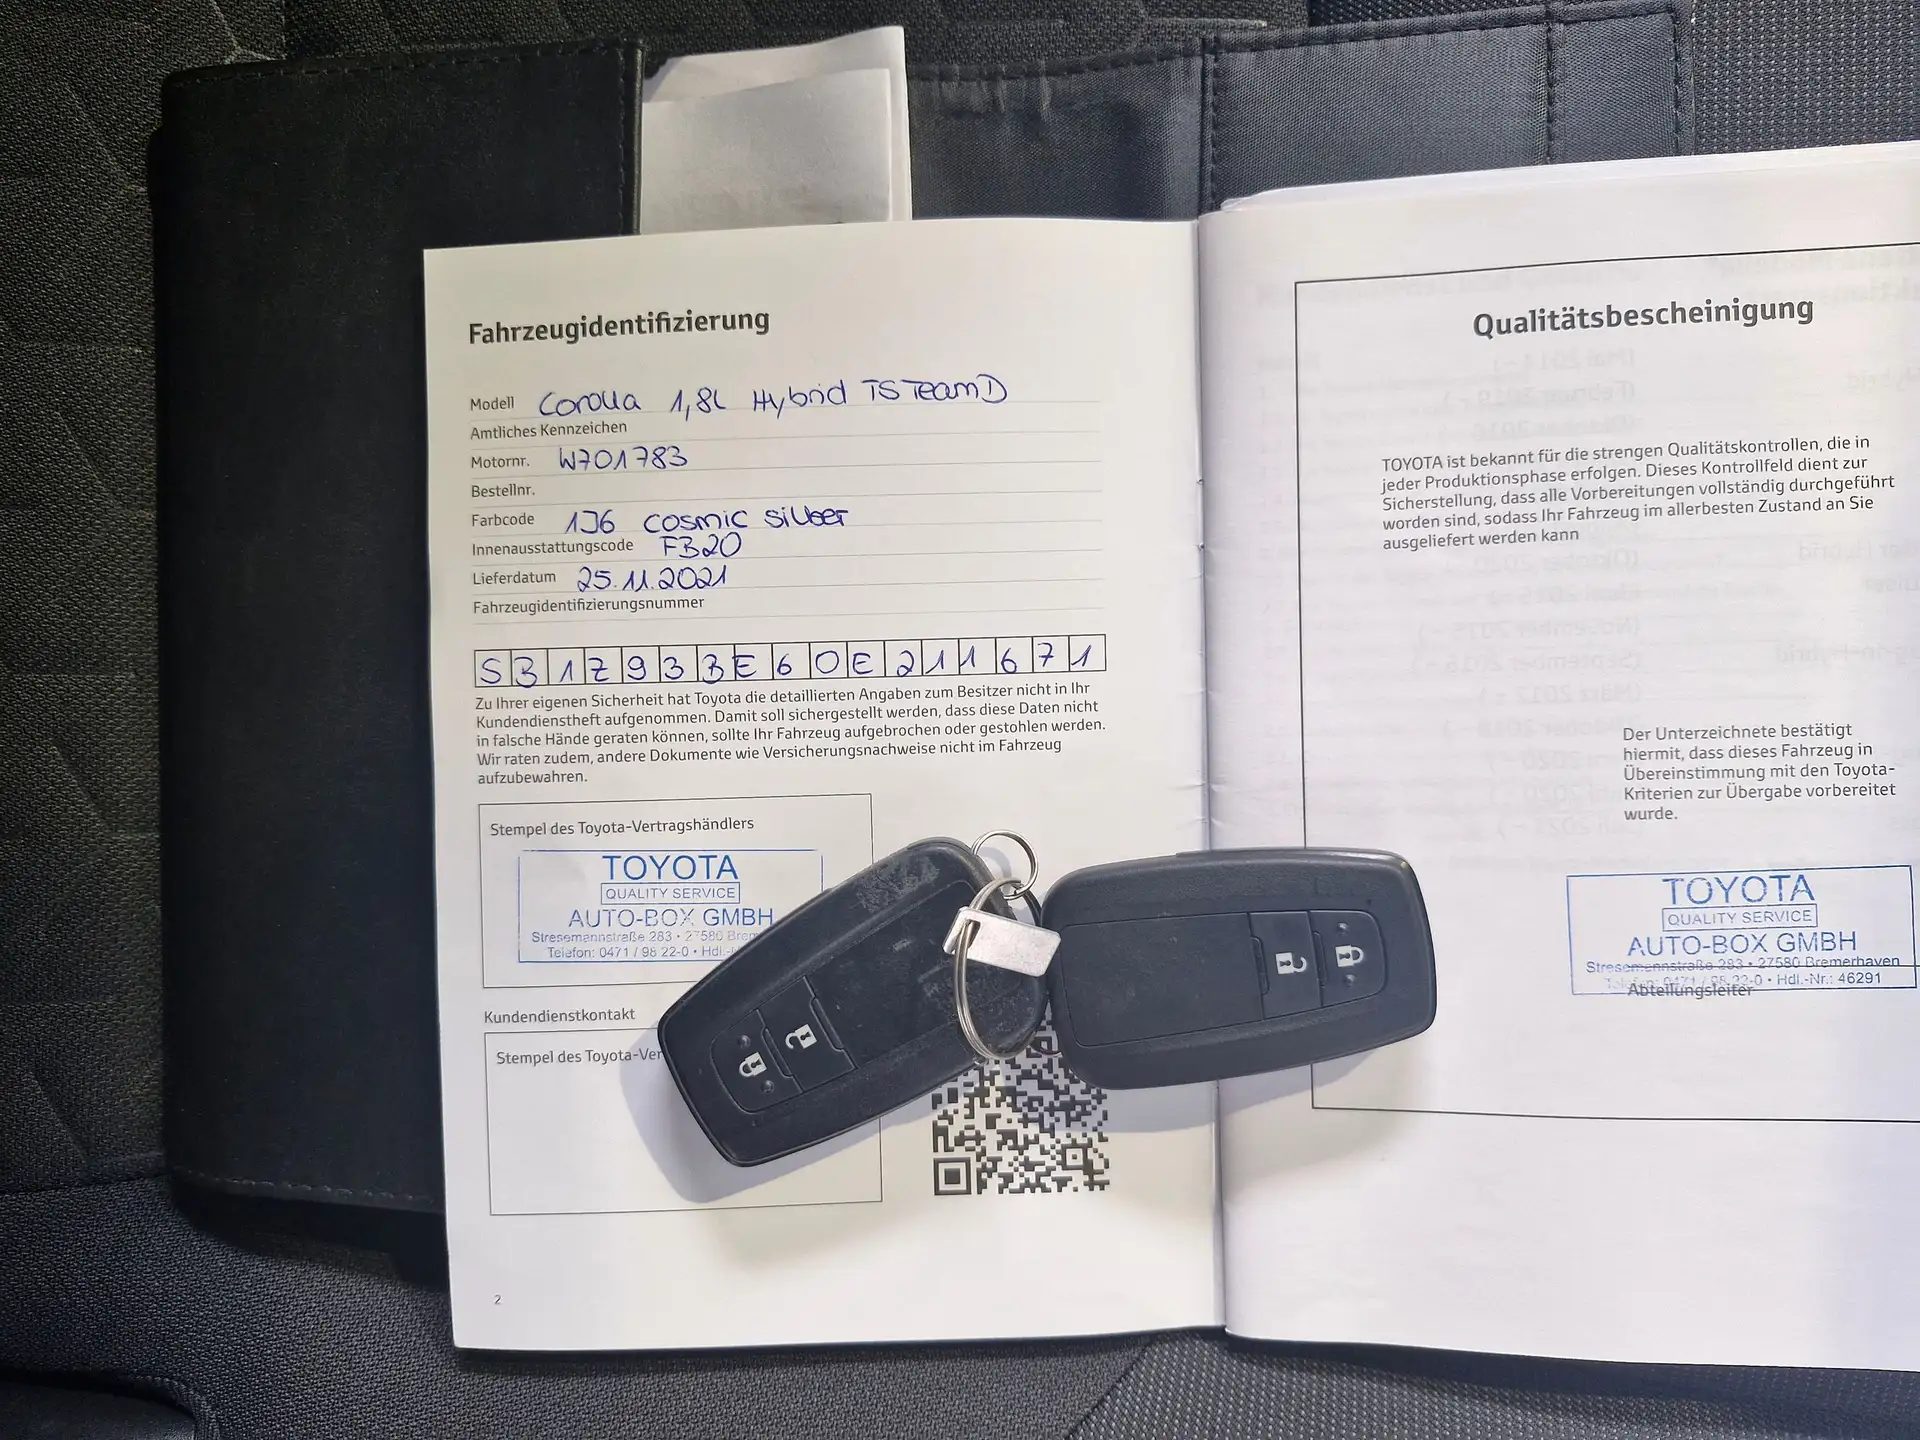 Fahrzeugidentifizierung
Modell Corolla 1,8L Hybrid TS TeamD
Amtliches Kennzeichen
Motornr. W701783
Bestellnr.
Farbcode 1J6 cosmic silber
Innenausstattungscode FB20
Lieferdatum 25.11.2021
Fahrzeugidentifizierungsnummer
SB1Z93BE60E211671
Zu Ihrer eigenen Sicherheit hat Toyota die detaillierten Angaben zum Besitzer nicht in Ihr
Kundendienstheft aufgenommen. Damit soll sichergestellt werden, dass diese Daten nicht
in falsche Hände geraten können, sollte Ihr Fahrzeug aufgebrochen oder gestohlen werden.
Wir raten zudem, andere Dokumente wie Versicherungsnachweise nicht im Fahrzeug
aufzubewahren.
Stempel des Toyota-Vertragshändlers
TOYOTA
QUALITY SERVICE
AUTO-BOX GMBH
Stresemannstraße 283 • 27580 Brem
Telefon: 0471 / 98 22-0 • Hdl.
Kundendienstkontakt
Stempel des Toyota-Ver
2
Qualitätsbescheinigung
TOYOTA ist bekannt für die strengen Qualitätskontrollen, die in
jeder Produktionsphase erfolgen. Dieses Kontrollfeld dient zur
Sicherstellung, dass alle Vorbereitungen vollständig durchgeführt
worden sind, sodass Ihr Fahrzeug im allerbesten Zustand an Sie
ausgeliefert werden kann
Der Unterzeichnete bestätigt
hiermit, dass dieses Fahrzeug in
Übereinstimmung mit den Toyota-
Kriterien zur Übergabe vorbereitet
wurde.
TOYOTA
QUALITY SERVICE
AUTO-BOX GMBH
Stresemannstraße 283 • 27580 Bremerhaven
Telefon: 0471 / 98 22-0 • Hdl.-Nr.: 46291
Abteilungsleiter